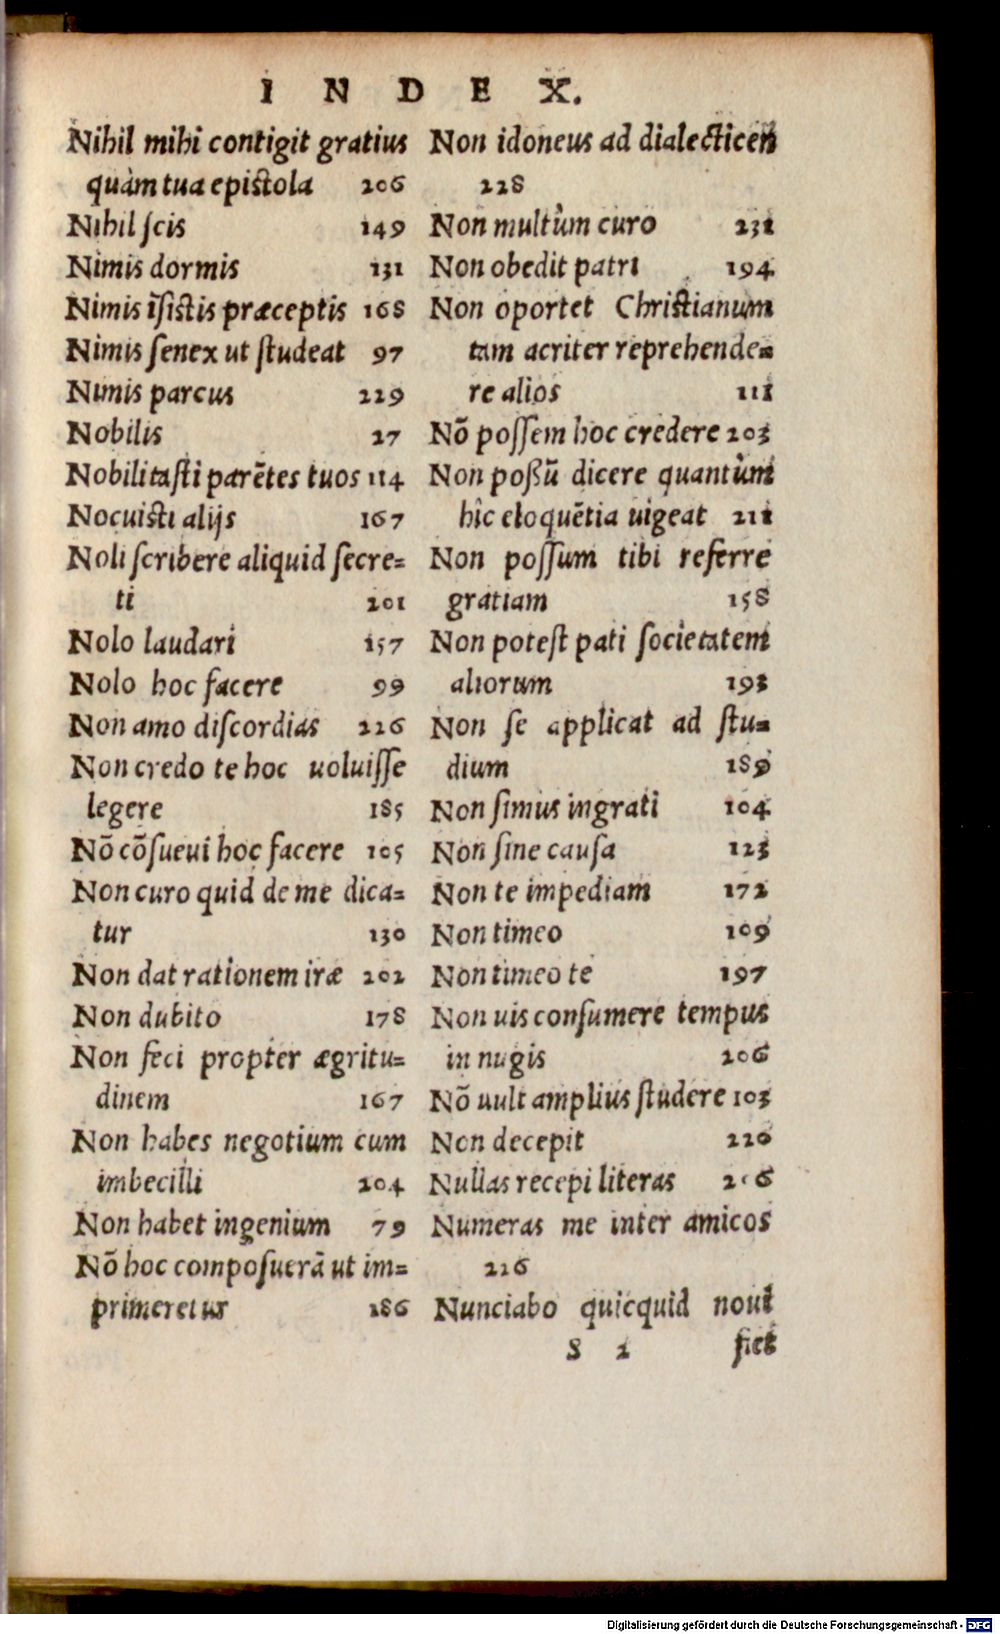 INDEX.
Nihil mihi contigit gratius
quàm tua epistola 206
Nihil scis 149
Nimis dormis 131
Nimis īsistis præceptis 168
Nimis senex ut studeat 97
Nimis parcus 229
Nobilis 27
Nobilitasti parētes tuos 114
Nocuisti alijs 167
Noli scribere aliquid secre=
ti 201
Nolo laudari 157
Nolo hoc facere 99
Non amo discordias 226
Non credo te hoc uoluisse
legere 185
Nō cōsueui hoc facere 105
Non curo quid de me dica=
tur 130
Non dat rationem iræ 202
Non dubito 178
Non feci propter ægritu=
dinem 167
Non habes negotium cum
imbecilli 204
Non habet ingenium 79
Nō hoc composuerā ut im=
primeretur 186
Non idoneus ad dialecticen
228
Non multùm curo 231
Non obedit patri 194
Non oportet Christianum
tam acriter reprehende=
re alios 111
Nō possem hoc credere 203
Non poßū dicere quantùm
hîc eloquētia uigeat 211
Non possum tibi referre
gratiam 158
Non potest pati societatem
aliorum 193
Non se applicat ad stu=
dium 189
Non simus ingrati 104
Non sine causa 123
Non te impediam 172
Non timeo 109
Non timeo te 197
Non uis consumere tempus
in nugis 206
Nō uult amplius studere 103
Non decepit 220
Nullas recepi literas 206
Numeras me inter amicos
226
Nunciabo quicquid noui
S 2 fiet
Digitalisierung gefördert durch die Deutsche Forschungsgemeinschaft - DFG